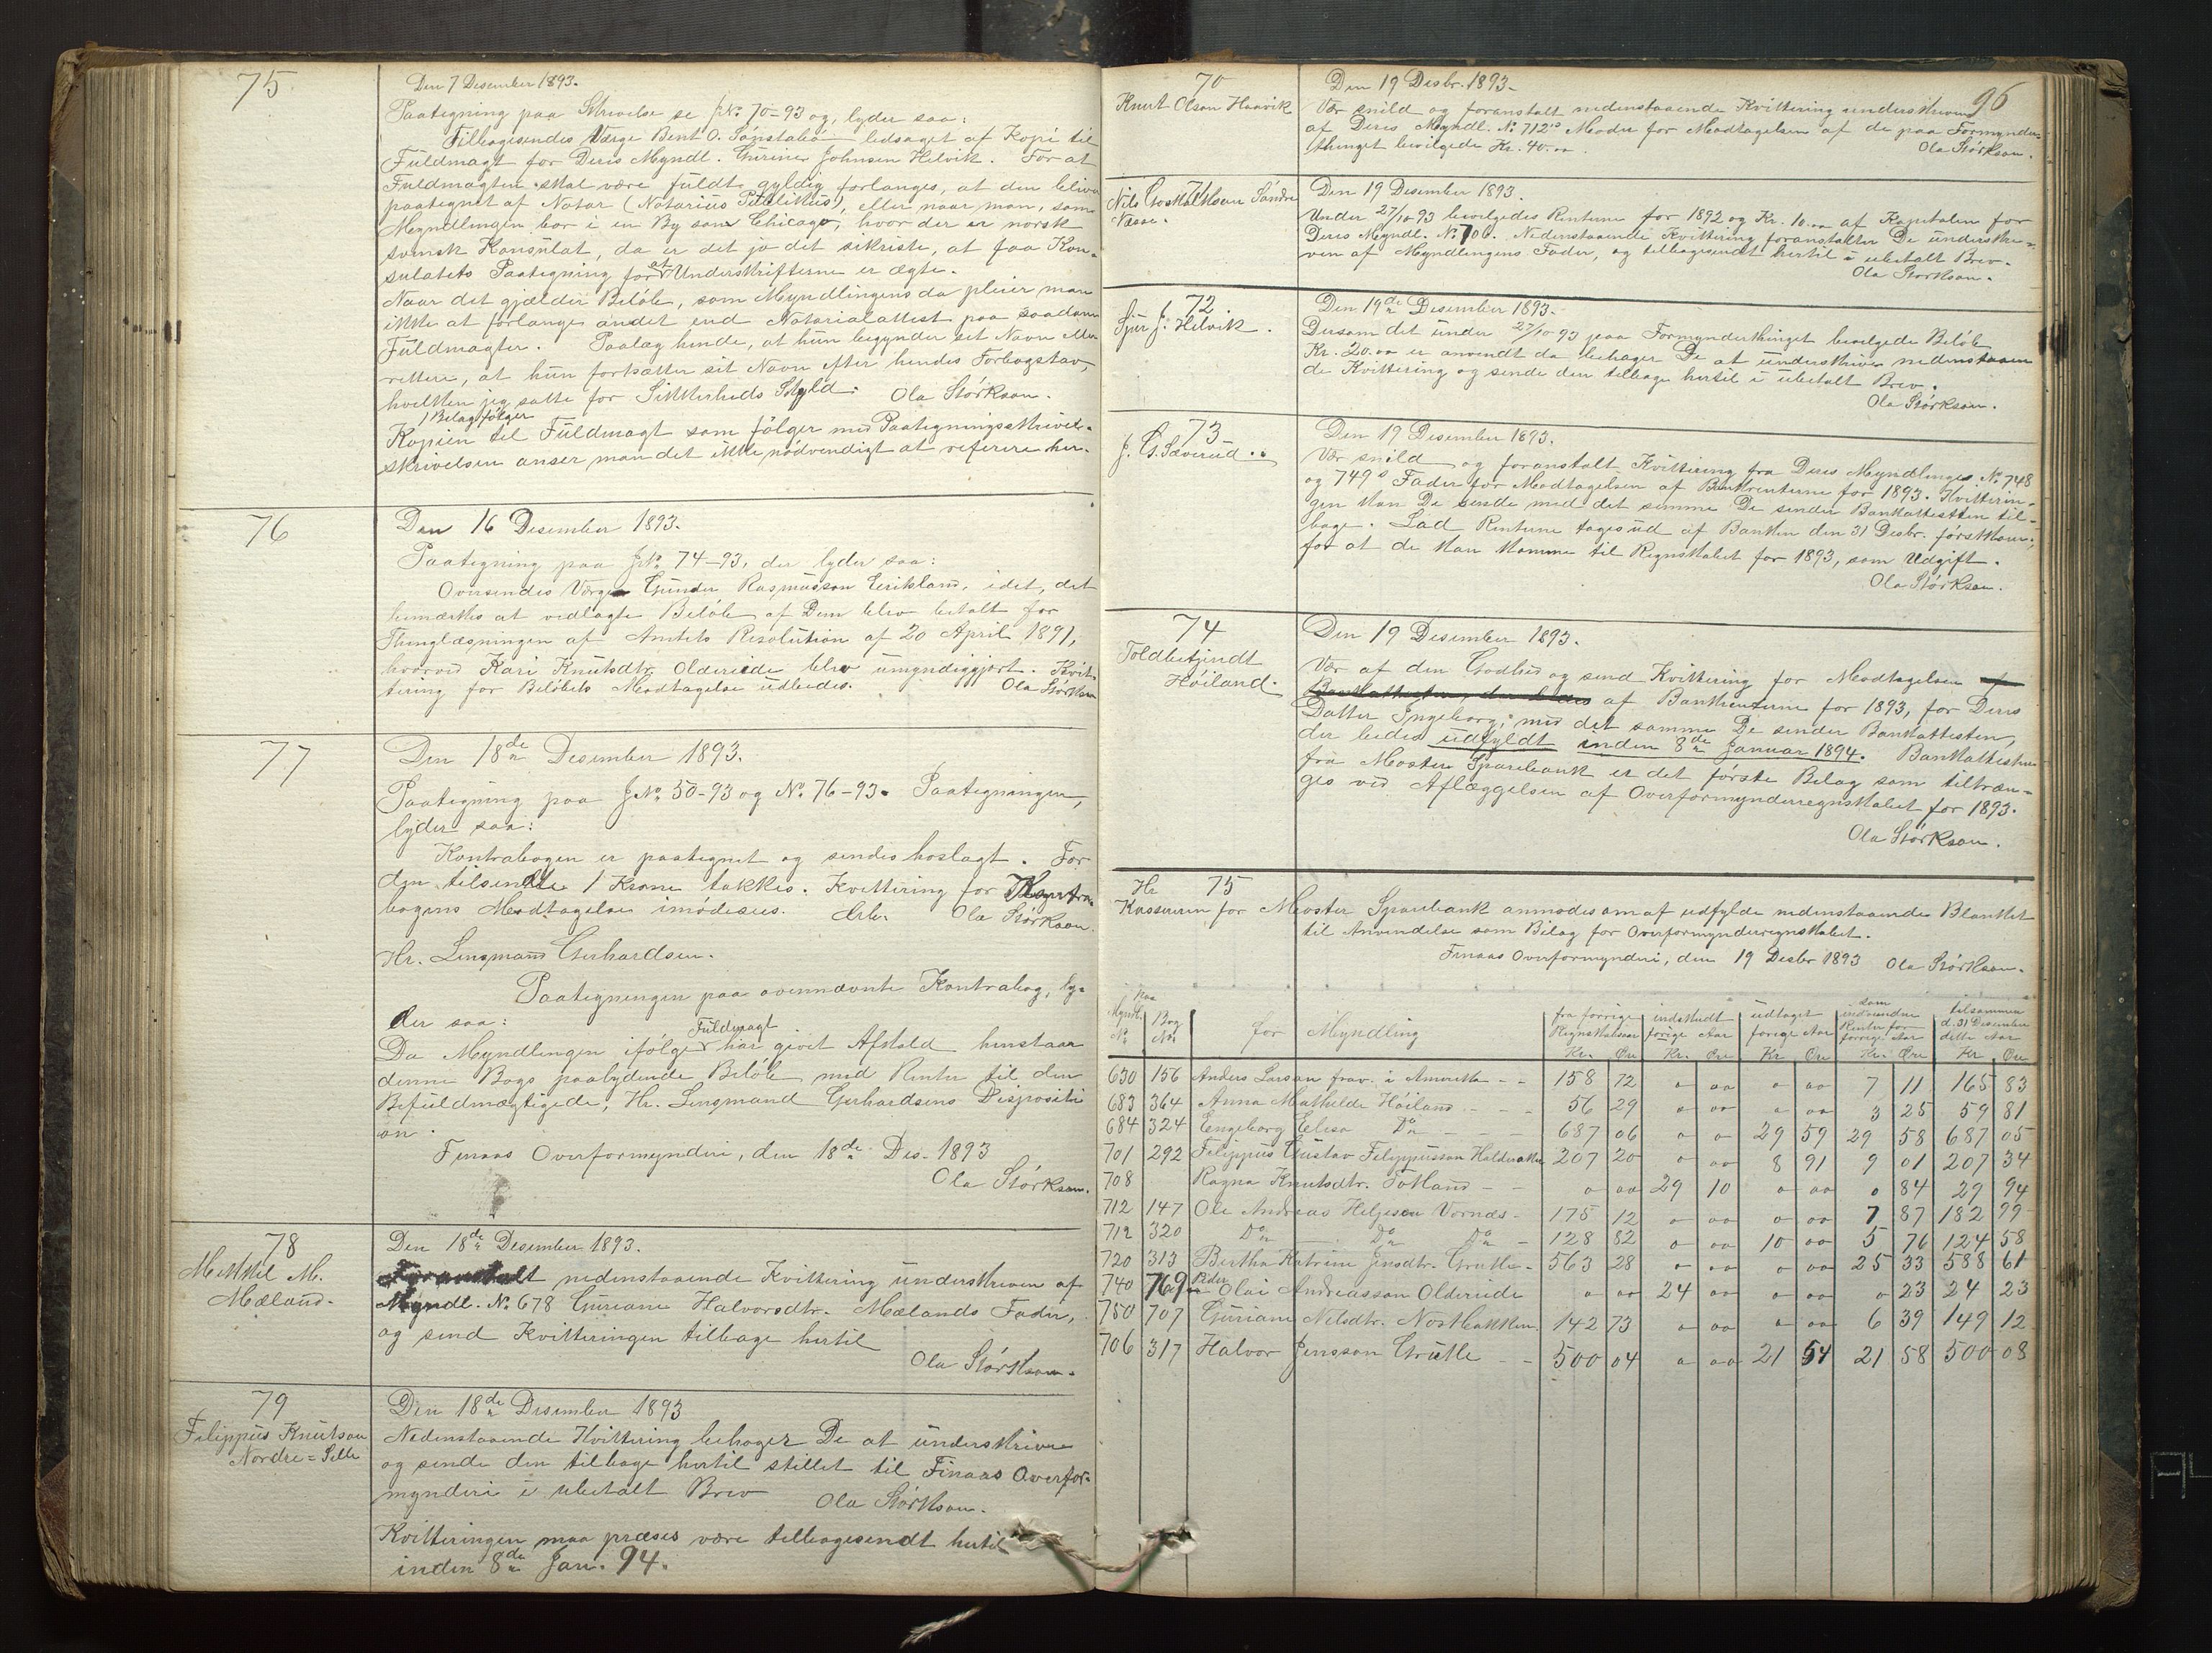 75
Den 7 Desember 1893.
Paategning paa Skrivelse se JNo. 70-93 og, lyder saa:
Tilbagesendes Værge Bent O. Sønstabø ledsaget af Kopi til
Fuldmagt for Deres Myndl. Gurine Johnsen Helvik. For at
Fuldmagten skal være fuldt gyldig forlanges, at den bliver
paategnet af Notar (Notarius Publikus), eller naar man, som
Myndlingen bor i en By som Chicago, hvor der er norsk
svensk Konsulat, da er det jo det sikreste, at faa Kon-
sulatets Paategning for at Underskrifterne er ægte.
Naar det gjælder Beløb, som Myndlingens da pleier man
ikke at forlange andet end Notarialattest paa saadan
Fuldmagter. Paalæg hende, at hun begynder sit Navn eller
rettere, at hun fortsætter sit Navn efter hendes Forbogstav,
hvilken jeg satte for Sikkerheds Skyld. Ola Størkson.
1 Bilag følger
Kopien til Fuldmagt som følger med Paategningsskrivel-
skrivelsen anser man det ikke nødvendigt at referere her.
76
Den 16 Desember 1893.
Paategning paa JNo. 74-93, der lyder saa:
Oversendes Værge Gunder Rasmusson Eriksland, idet, det
bemærkes at vedlagte Beløb af Dem blev betalt for
Thinglæsningen af Amtets Resolution af 20 April 1891,
hvorved Kari Knutsdtr. Oldereide blev umyndiggjort. Kvit-
tering for Beløbets Modtagelse udbedes. Ola Størkson
77
Den 18de Desember 1893.
Paategning paa JNo. 50-93 og No. 76-93. Paategningen,
lyder saa:
Kontrabogen er paategnet og sendes hoslagt. For
den tilsendte 1 Krone takkes. Kvittering for Kontra-
bogens Modtagelse imødesees. Erb. Ola Størkson.
Hr. Lensmand Gerhardsen.
Paategningen paa ovennævnte Kontrabog, ly-
der saa:
Da Myndlingen ifølge Fuldmagt har givet Afkald henstaar
denne Bogs paalydende Beløb med Renter til den
Befuldmægtigede, Hr. Lensmand Gerhardsens Dispositi
on.
Finaas Overformynderi, den 18de Des. 1893
Ola Størkson.
78
Mikkel M.
Mæland.
Den 18de Desember 1893.
Foranstalt nedenstaaende Kvittering underskreven af
Myndl. No. 678 Guriane Halvorsdtr. Mælands Fader,
og send Kvitteringen tilbage hertil
Ola Størkson.
79
Filippus Knutson
Nordre-Selle
Den 18de Desember 1893
Nedenstaaende Kvittering behager De at underskrive
og sende den tilbage hertil stillet til Finaas Overfor-
mynderi i ubetalt Brev Ola Størkson.
Kvitteringen maa præses være tilbagesendt hertil
inden 8de Jan. 94.
96
70
Knut Olson Haavik
Den 19 Desbr. 1893.
Vær snild og foranstalt nedenstaaende Kvittering underskreven
af Deres Myndl. No. 712s Moder for Modtagelsen af de paa Formynder-
thinget bevilgede Kr. 40.00. Ola Størkson.
71
Nils Søndre
Vaage.
Den 19 Desember 1893.
Under 27/10 93 bevilgedes Renterne for 1892 og Kr. 10.00 af Kapitalen for
Deres Myndl. No. 700. Nedenstaaende Kvittering foranstalter De underskre-
ven af Myndlingens Fader, og tilbagesendt hertil i ubetalt Brev.
Ola Størkson.
72.
Sjur J. Helvik.
Den 19de Desember 1893.
Dersom det under 27/10 93 paa Formynderthinget bevilgede Beløb
Kr. 20.00 er anvendt da behager De at underskrive nedenstaaen
de Kvittering og sende den tilbage hertil i ubetalt Brev.
Ola Størkson.
73
J. G. Sæverud.
Den 19 Desember 1893.
Vær snild og foranstalt Kvittering fra Deres Myndlinges No. 748
og 749s Fader for Modtagelsen af Bankrenterne for 1893. Kvitterin-
gen kan De sende med det samme De sender Bankattesten til-
bage. Lad Renterne tages ud af Banken den 31 Desbr. førstkom.,
for at de kan komme til Regnskabet for 1893, som Udgift.
Ola Størkson.
74
Toldbetjendt
Høiland.
Den 19 Desember 1893.
Vær af den Godhed og send Kvittering for Modtagelsen
af Bankrenterne for 1893, for Deres
Datter Ingeborg, med det samme De sender Bankattesten,
der bedes udfyldt inden 8de Januar 1894. Bankattesten
fra Moster Sparebank er det første Bilag som tiltræn-
ges ved Aflæggelsen af Overformynderregnskabet for 1893.
Ola Størkson.
75
Hr
Kassereren for Moster Sparebank anmodes om at udfylde nedenstaaende Blanket
til Anvendelse som Bilag for Overformynderregnskabet.
Finaas Overformynderi, den 19 Desbr 1893 Ola Størkson.
Myndl. No. | paa Bog No. | for Myndling | fra forrige Regnskabsaar Kr. Øre | indskudt forige Aar Kr. Øre | udtaget forige Aar Kr Øre | som indvundne Renter for forrige Aar Kr. Øre | tilsammen d. 31 Desember dette Aar Kr Øre
630 156 Anders Larson frav. i Amerika - - 158 72 0 00 0 00 7 11 165 83
683 364 Anna Mathilde Høiland - - - 56 29 0 00 0 00 3 25 59 81
684 324 Engeborg Elisa Do - - - 687 06 0 0 29 59 29 58 687 05
701 292 Filippus Gustav Filippusson 207 20 0 00 8 91 9 01 207 34
708 Ragna Knutsdtr. Totland - - 0 00 29 10 0 00 0 84 29 94
712 147 Ole Andreas Helgeson Vornæs - 175 12 0 00 0 00 7 87 182 99
712 320 Do Do Do - 128 82 0 00 10 00 5 76 124 58
720 313 Bertha Katrine Jensdtr. Grutle - 563 28 0 00 0 00 25 33 588 61
740 769 Peder Olai Andreasson Oldereide 0 00 24 00 0 00 0 23 24 23
750 707 Guriane Nilsdtr. Nosthakken. 142 73 0 00 0 00 6 39 149 12
706 317 Halvor Jensson Grutle - - 500 04 0 00 21 54 21 58 500 08